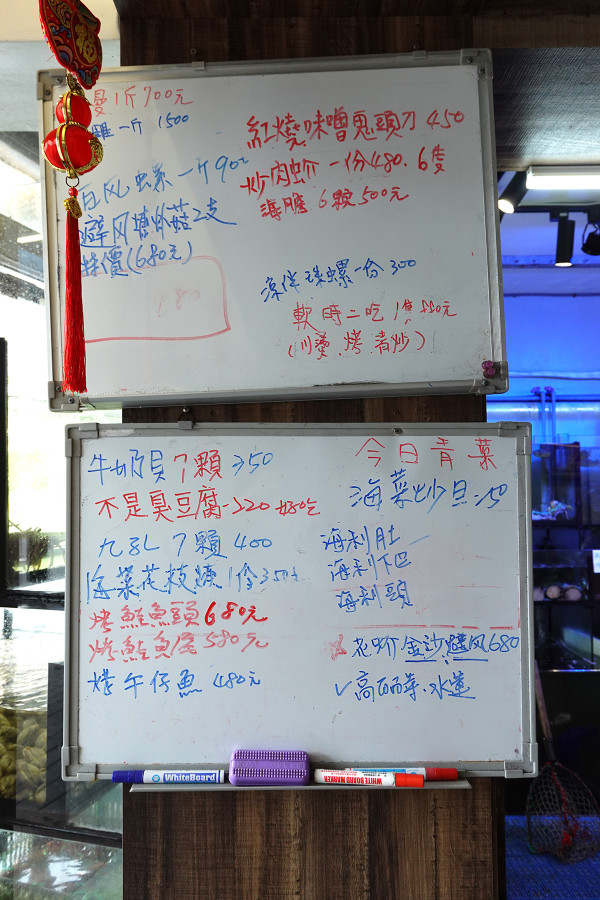 1斤700元
一斤 1500
白风螺 一斤90
避风塘炒菇2支
特價(680元)
紅燒.味噌鬼頭刀 450
炒肉蚧 一份480. 6隻
海膽 6顆 500元
涼拌珠螺一份 300
二吃 1隻550元
(川燙.烤.青炒)
牛奶貝 7顆 350
不是臭豆腐-220 好吃
九孔 7顆 400
海菜花枝 1份350
烤鮭魚頭 680元
烤鮭魚尾 580元
烤 午仔魚 480元
今日青菜
海菜炒旦 150
海利肚
海利下巴
海利頭
花蚧 金沙.避风680
✓高丽菜.水蓮
WhiteBoard
WHITE BOARD MARKER